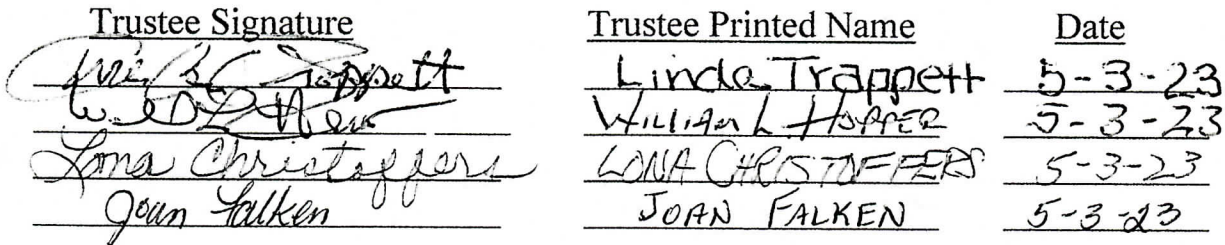 Trustee Signature Trustee Printed Name Date
Trappett Linda Trappett 5-3-23
WILLIAM L HOPPER 5-3-23
Lona Christoffers LONA CHRISTOFFERS 5-3-23
Joan Falken JOAN FALKEN 5-3-23